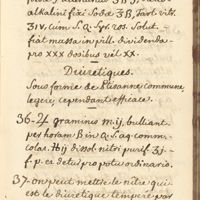 alkalini fixi Sodæ ʒß, Tart. vitr.
ʒiv, cum S. Q. Syr. ros. Solut.
fiat massa in pill. dividenda
pro xxx dosibus vel xx.
Diuretiques.
Sous formie de Ptisanne commune,
legere, cependant efficace.
36-♃ graminis m.ij, bulliant
per horam ß in Q. S. aq. commu-
colat. ℔ij dissol. nitri purif. ʒj-
f. p. et detur pro potu ordinario.
37-on peut mettre le nitre qui
est le diuretique tempere par